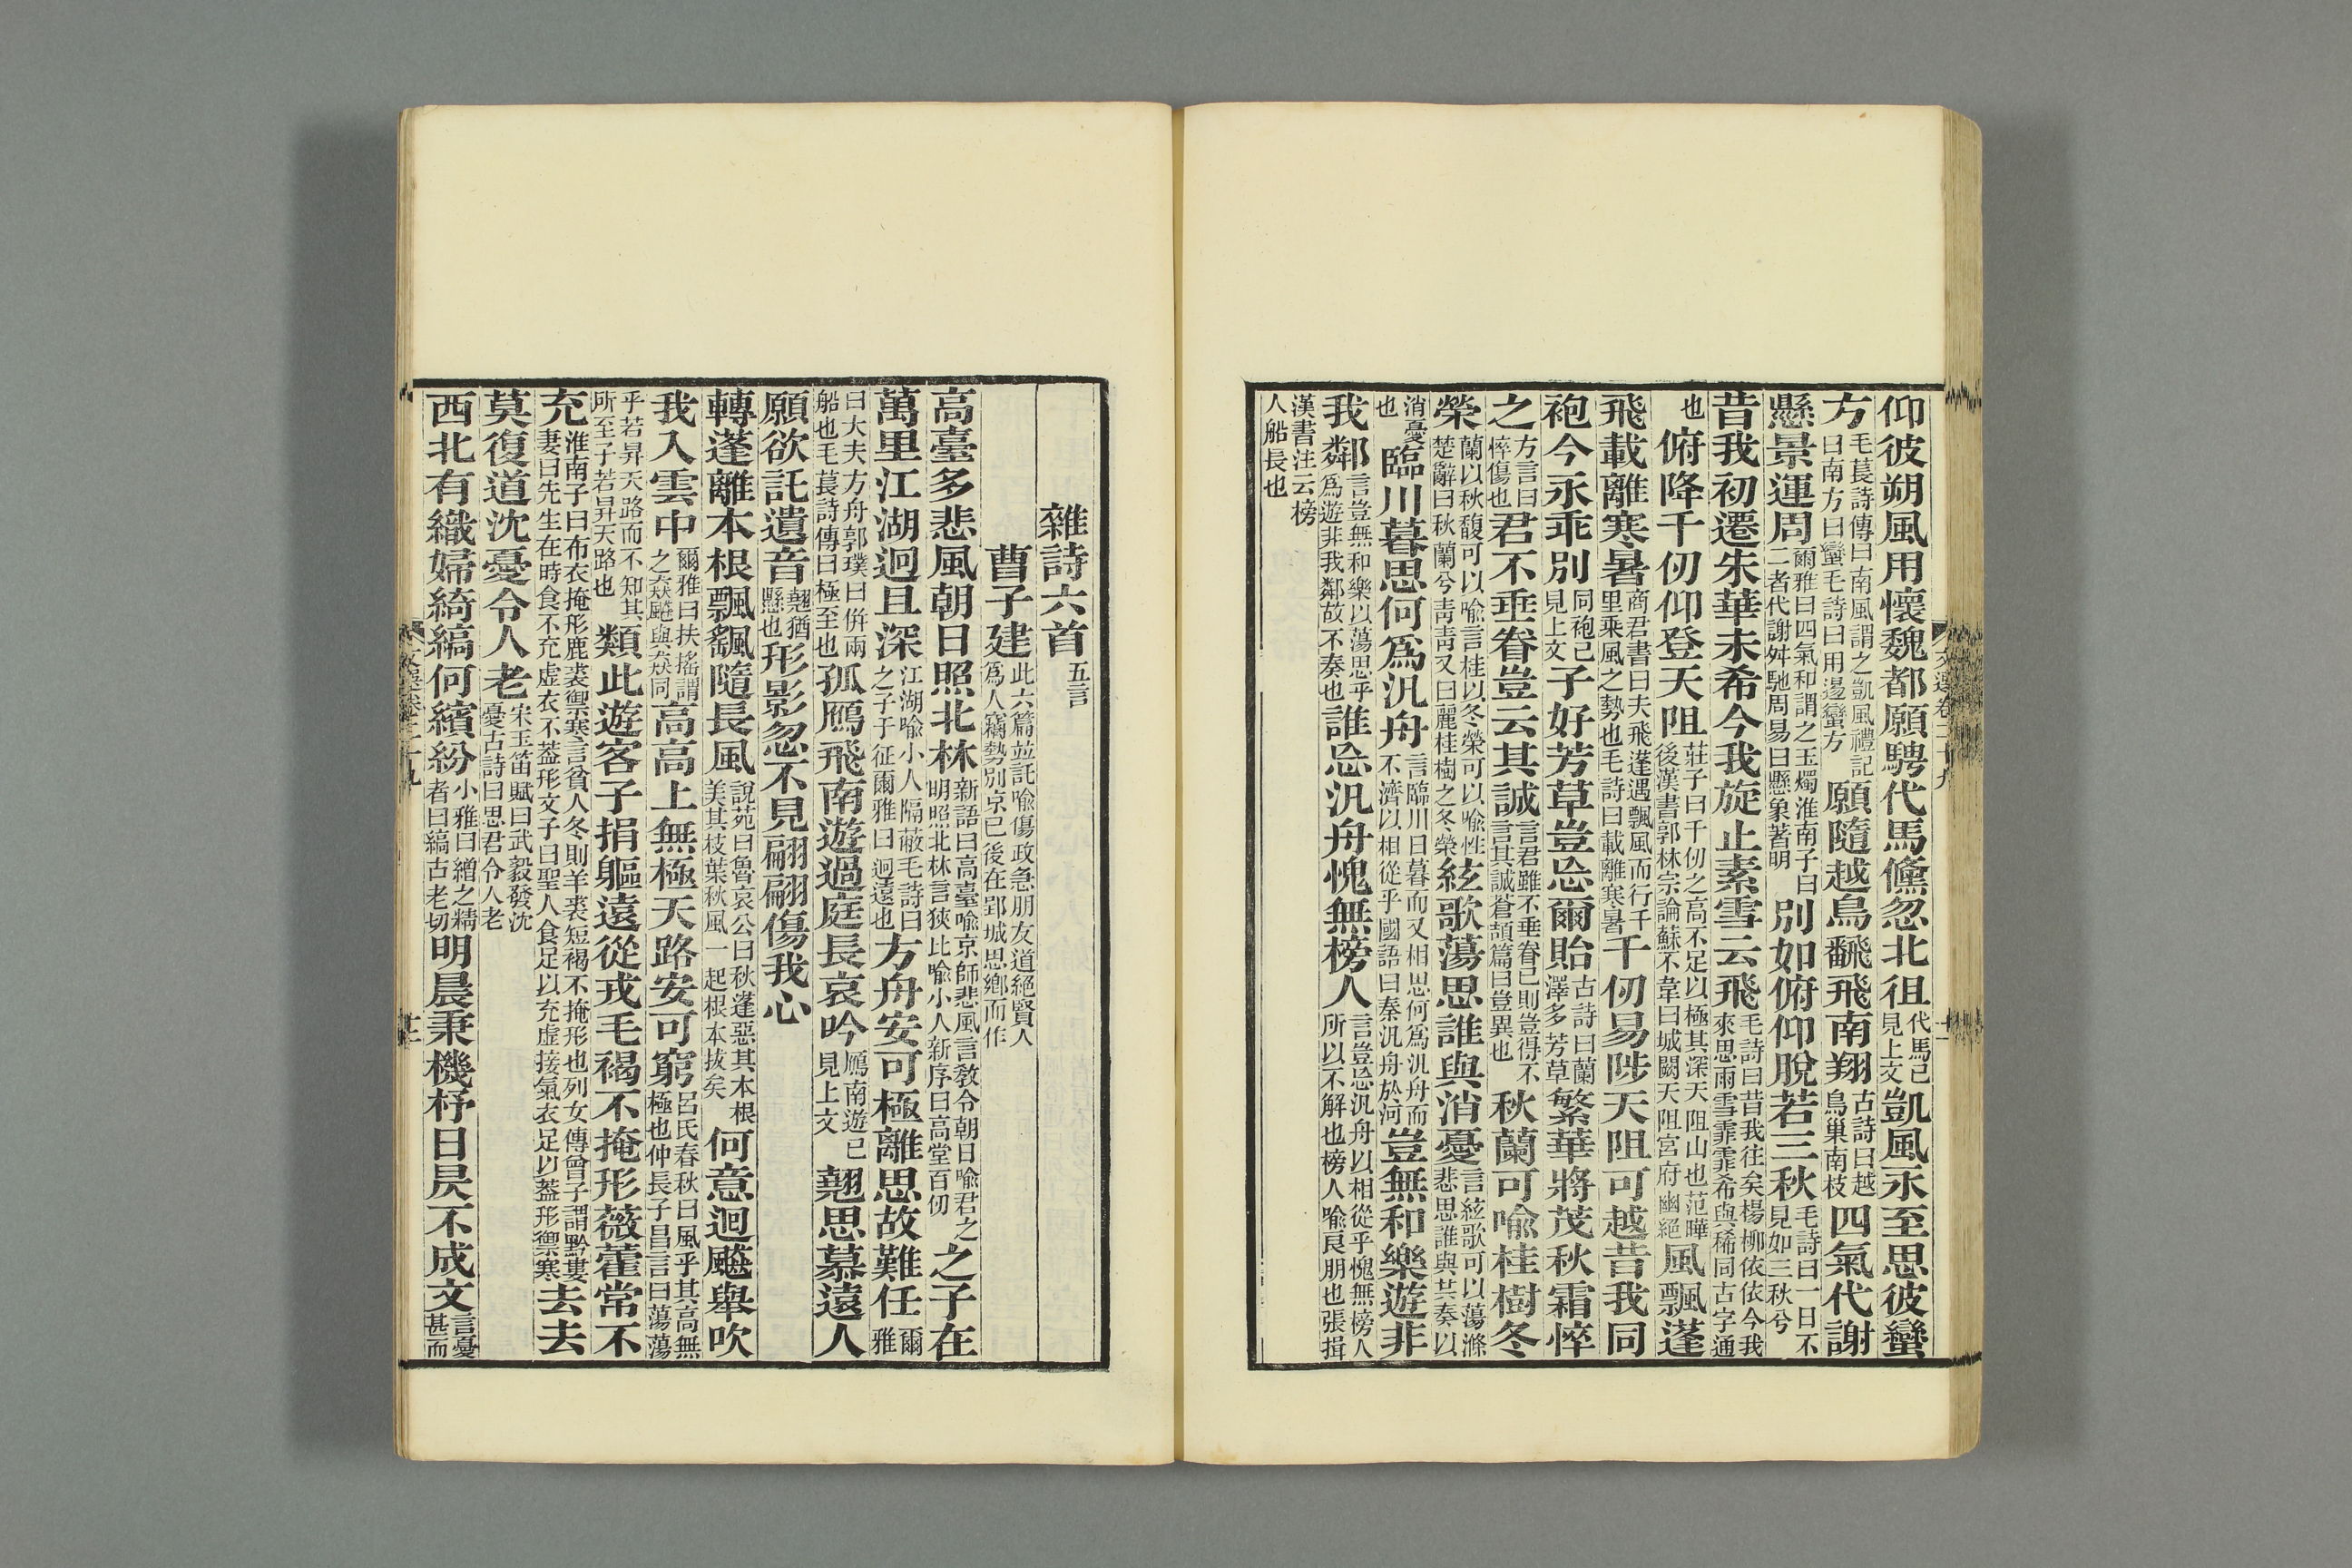 仰彼朔風用懷魏都願騁代馬儵忽北徂代馬已見上文凱風永至思彼蠻
方毛萇詩傳曰南風謂之凱風禮記曰南方曰蠻毛詩曰用逷蠻方願隨越鳥飜飛南翔古詩曰越鳥巢南枝四氣代謝
懸景運周爾雅曰四氣和謂之玉燭淮南子曰二者代謝舛馳周易曰懸象著明別如俯仰脫若三秋毛詩曰一日不見如三秋兮
昔我初遷朱華未希今我旋止素雪云飛毛詩曰昔我往矣楊柳依依今我來思雨雪霏霏希與稀同古字通
也俯降千仞仰登天阻莊子曰千仞之高不足以極其深天阻山也范曄後漢書郭林宗論蘇不韋曰城闕天阻宮府幽絕風飄蓬
飛載離寒暑商君書曰夫飛蓬遇飄風而行千里乘風之勢也毛詩曰載離寒暑千仞易陟天阻可越昔我同
袍今永乖別同袍已見上文子好芳草豈忘爾貽古詩曰蘭澤多芳草繁華將茂秋霜悴
之方言曰悴傷也君不垂眷豈云其誠言君雖不垂眷已則豈得不言其誠蒼頡篇曰豈異也秋蘭可喻桂樹冬
榮蘭以秋馥可以喻言桂以冬榮可以喻性楚辭曰秋蘭兮青青又曰麗桂樹之冬榮絃歌蕩思誰與消憂言絃歌可以蕩滌悲思誰與共奏以
消憂也臨川暮思何爲汎舟言臨川日暮而又相思何爲汎舟而不濟以相從乎國語曰秦汎舟於河豈無和樂遊非
我鄰言豈無和樂以蕩思乎爲遊非我鄰故不奏也誰忘汎舟愧無榜人言豈忘汎舟以相從乎愧無榜人所以不解也榜人喻良朋也張揖
漢書注云榜人船長也
雜詩六首五言
曹子建此六篇並託喻傷政急朋友道絕賢人爲人竊勢別京已後在郢城思鄉而作
高臺多悲風朝日照北林新語曰高臺喻京師悲風言教令朝日喻君之明照北林言狹比喻小人新序曰高堂百仞之子在
萬里江湖迥且深江湖喻小人隔蔽毛詩曰之子于征爾雅曰迥遠也方舟安可極離思故難任爾雅
曰大夫方舟郭璞曰併兩船也毛萇詩傳曰極至也孤鴈飛南遊過庭長哀吟鴈南遊已見上文翹思慕遠人
願欲託遺音翹猶懸也形影忽不見翩翩傷我心
轉蓬離本根飄颻隨長風說苑曰魯哀公曰秋蓬惡其本根美其枝葉秋風一起根本拔矣何意迴飇舉吹
我入雲中爾雅曰扶搖謂之猋飇與猋同高高上無極天路安可窮呂氏春秋曰風乎其高無極也仲長子昌言曰蕩蕩
乎若昇天路而不知其所至子若昇天路也類此遊客子捐軀遠從戎毛褐不掩形薇藿常不
充淮南子曰布衣掩形鹿裘禦寒言貧人冬則羊裘短褐不掩形也列女傳曾子謂黔婁妻曰先生在時食不充虛衣不蓋形文子曰聖人食足以充虛接氣衣足以蓋形禦寒去去
莫復道沈憂令人老宋玉笛賦曰武毅發沈憂古詩曰思君令人老
西北有織婦綺縞何繽紛小雅曰繒之精者曰縞古老切明晨秉機杼日昃不成文言憂甚而
文選卷二十九